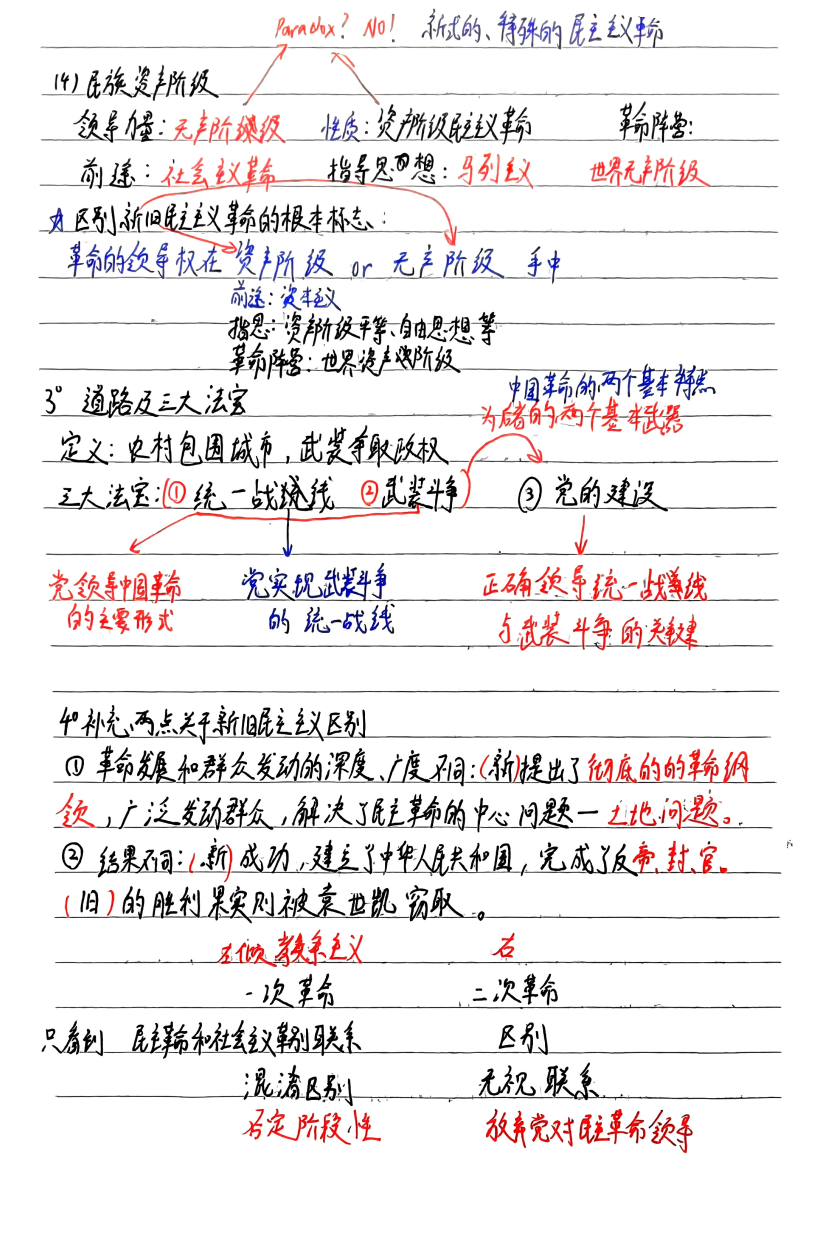 Paradox? No! 新式的、特殊的民主主义革命
(4) 民族资产阶级
领导力量:无产阶级 性质:资产阶级民主主义革命 革命阵营:
前途:社会主义革命 指导思想:马列主义 世界无产阶级
☆ 区别新旧民主主义革命的根本标志:
革命的领导权在 资产阶级 or 无产阶级 手中
前途:资本主义
指思:资产阶级平等、自由思想等
革命阵营:世界资产阶级
中国革命的两个基本特点
3° 道路及三大法宝
为后者的两个基本武器
定义:农村包围城市,武装争取政权
三大法宝:① 统一战线 ② 武装斗争 ③ 党的建设
党领导中国革命 党实现武装斗争 正确领导统一战线
的主要形式 的 统一战线 与武装斗争的关键
4° 补充两点关于新旧民主主义区别
① 革命发展和群众发动的深度、广度不同:(新)提出了彻底的的革命纲
领,广泛发动群众,解决了民主革命的中心问题一土地问题。
② 结果不同:(新)成功,建立了中华人民共和国,完成了反帝、封、官。
(旧)的胜利果实则被袁世凯窃取。
左倾教条主义 右
一次革命 二次革命
只看到 民主革命和社会主义革别联系 区别
混淆区别 无视联系
否定阶段性 放弃党对民主革命领导